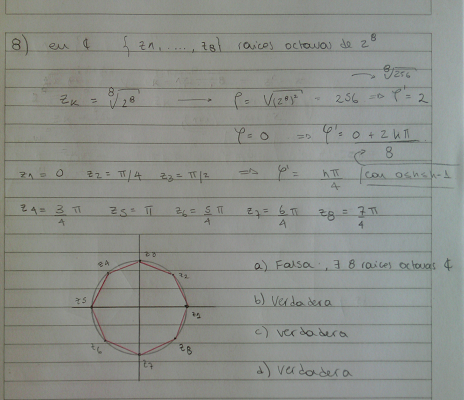 8) en ₵ { z1, ....., z8 } raices octavas de 2^8
zk = ⁸√2^8 → ρ = √(2^8)² = 256 ⇒ ρ' = 2
→ ⁸√256
φ = 0 ⇒ φ' = 0 + 2kπ / 8
z1 = 0 z2 = π/4 z3 = π/2 ⇒ φ' = kπ/4 con
z4 = 3/4 π z5 = π z6 = 5/4 π z7 = 6/4 π z8 = 7/4 π
z3
z4 z2
z5 z1
z6 z8
z7
a) Falsa, ∃ 8 raices octavas ₵
b) Verdadera
c) Verdadera
d) Verdadera